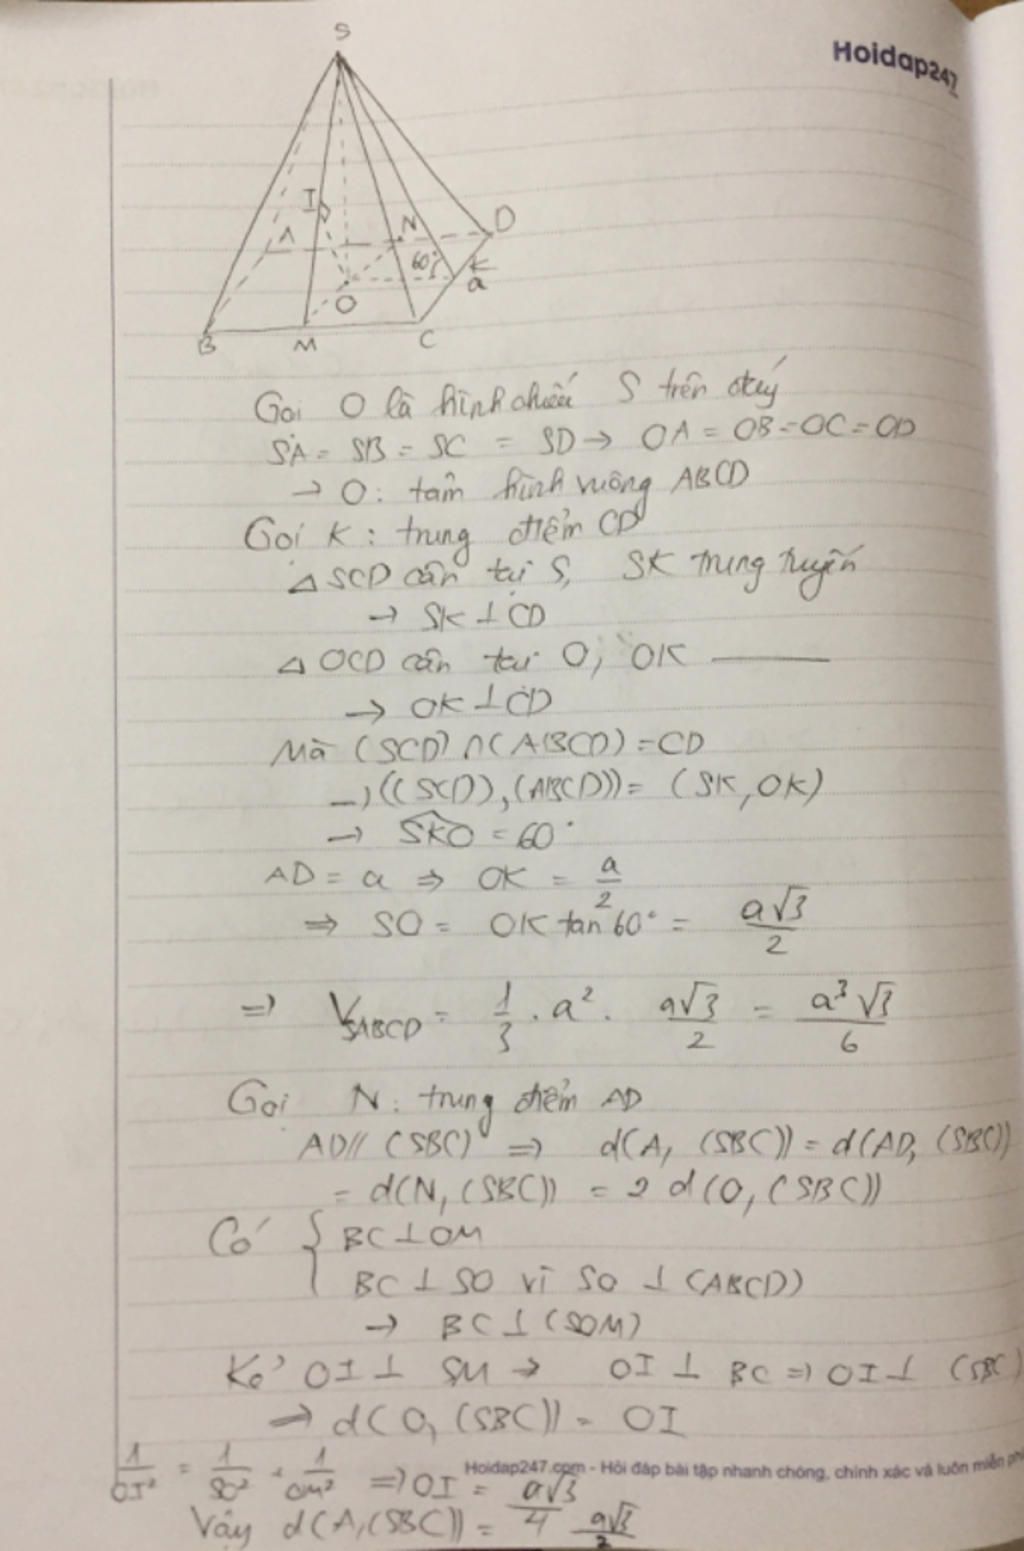 Hoidap247
S
I
A
N
D
60°
K
a
O
B
M
C
Gọi O là hình chiếu S trên đáy
SA = SB = SC = SD → OA = OB = OC = OD
→ O: tâm hình vuông ABCD
Gọi K: trung điểm CD
△SCD cân tại S, SK trung tuyến
→ SK ⊥ CD
△OCD cân tại O, OK ———
→ OK ⊥ CD
Mà (SCD) ∩ (ABCD) = CD
→ ((SCD), (ABCD)) = (SK, OK)
→ \widehat{SKO} = 60°
AD = a ⇒ OK = a/2
⇒ SO = OK tan 60° = a√3/2
⇒ V_{SABCD} = 1/3 . a² . a√3/2 = a³√3/6
Gọi N: trung điểm AD
AD // (SBC) ⇒ d(A, (SBC)) = d(AD, (SBC))
= d(N, (SBC)) = 2 d(O, (SBC))
Có { BC ⊥ OM
BC ⊥ SO vì SO ⊥ (ABCD)
→ BC ⊥ (SOM)
Kẻ OI ⊥ SM → OI ⊥ BC ⇒ OI ⊥ (SBC)
→ d(O, (SBC)) = OI
1/OI² = 1/SO² + 1/OM² ⇒ OI = a√3/4
Hoidap247.com - Hỏi đáp bài tập nhanh chóng, chính xác và luôn miễn ph
Vậy d(A, (SBC)) = a√3/2